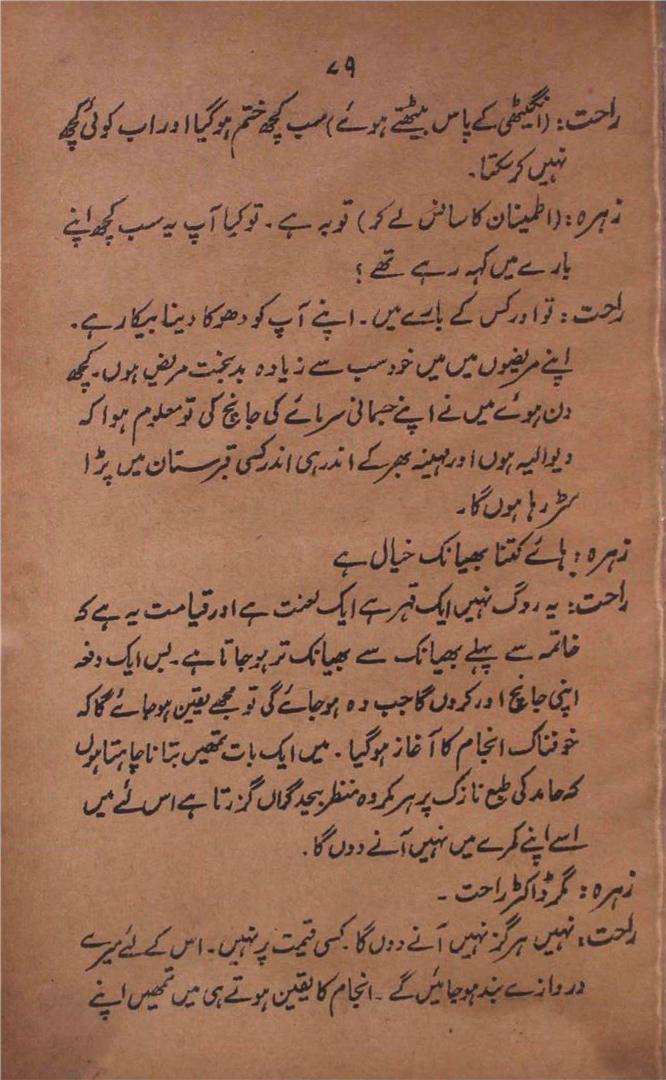 ۷۹
راحت: (انگیٹھی کے پاس بیٹھتے ہوئے) سب کچھ ختم ہوگیا اور اب کوئی کچھ
نہیں کرسکتا۔
زہرہ: (اطمینان کا سانس لے کر) توبہ ہے۔ تو کیا آپ یہ سب کچھ اپنے
بارے میں کہہ رہے تھے؟
راحت: تو اور کس کے بارے میں۔ اپنے آپ کو دھوکا دینا بیکار ہے۔
اپنے مریضوں میں میں خود سب سے زیادہ بدبخت مریض ہوں۔ کچھ
دن ہوئے میں نے اپنے جسمانی سرمائے کی جانچ کی تو معلوم ہوا کہ
دیوالیہ ہوں اور مہینہ بھر کے اندر ہی اندر کسی قبرستان میں پڑا
سڑ رہا ہوں گا۔
زہرہ: ہائے کتنا بھیانک خیال ہے
راحت: یہ روگ نہیں ایک قہر ہے ایک لعنت ہے اور قیامت یہ ہے کہ
خاتمہ سے پہلے بھیانک سے بھیانک تر ہوجاتا ہے۔ بس ایک دفعہ
اپنی جانچ اور کروں گا جب وہ ہوجائے گی تو مجھے یقین ہوجائے گا کہ
خوفناک انجام کا آغاز ہوگیا۔ میں ایک بات تمھیں بتانا چاہتا ہوں
کہ حامد کی طبع نازک پر ہر مکروہ منظر بیحد گراں گزرتا ہے اس لئے میں
اسے اپنے کمرے میں نہیں آنے دوں گا۔
زہرہ: مگر ڈاکٹر راحت۔
راحت: نہیں ہرگز نہیں آنے دوں گا۔ کسی قیمت پر نہیں۔ اس کے لئے میرے
دروازے بند ہوجائیں گے۔ انجام کا یقین ہوتے ہی میں تمھیں اپنے